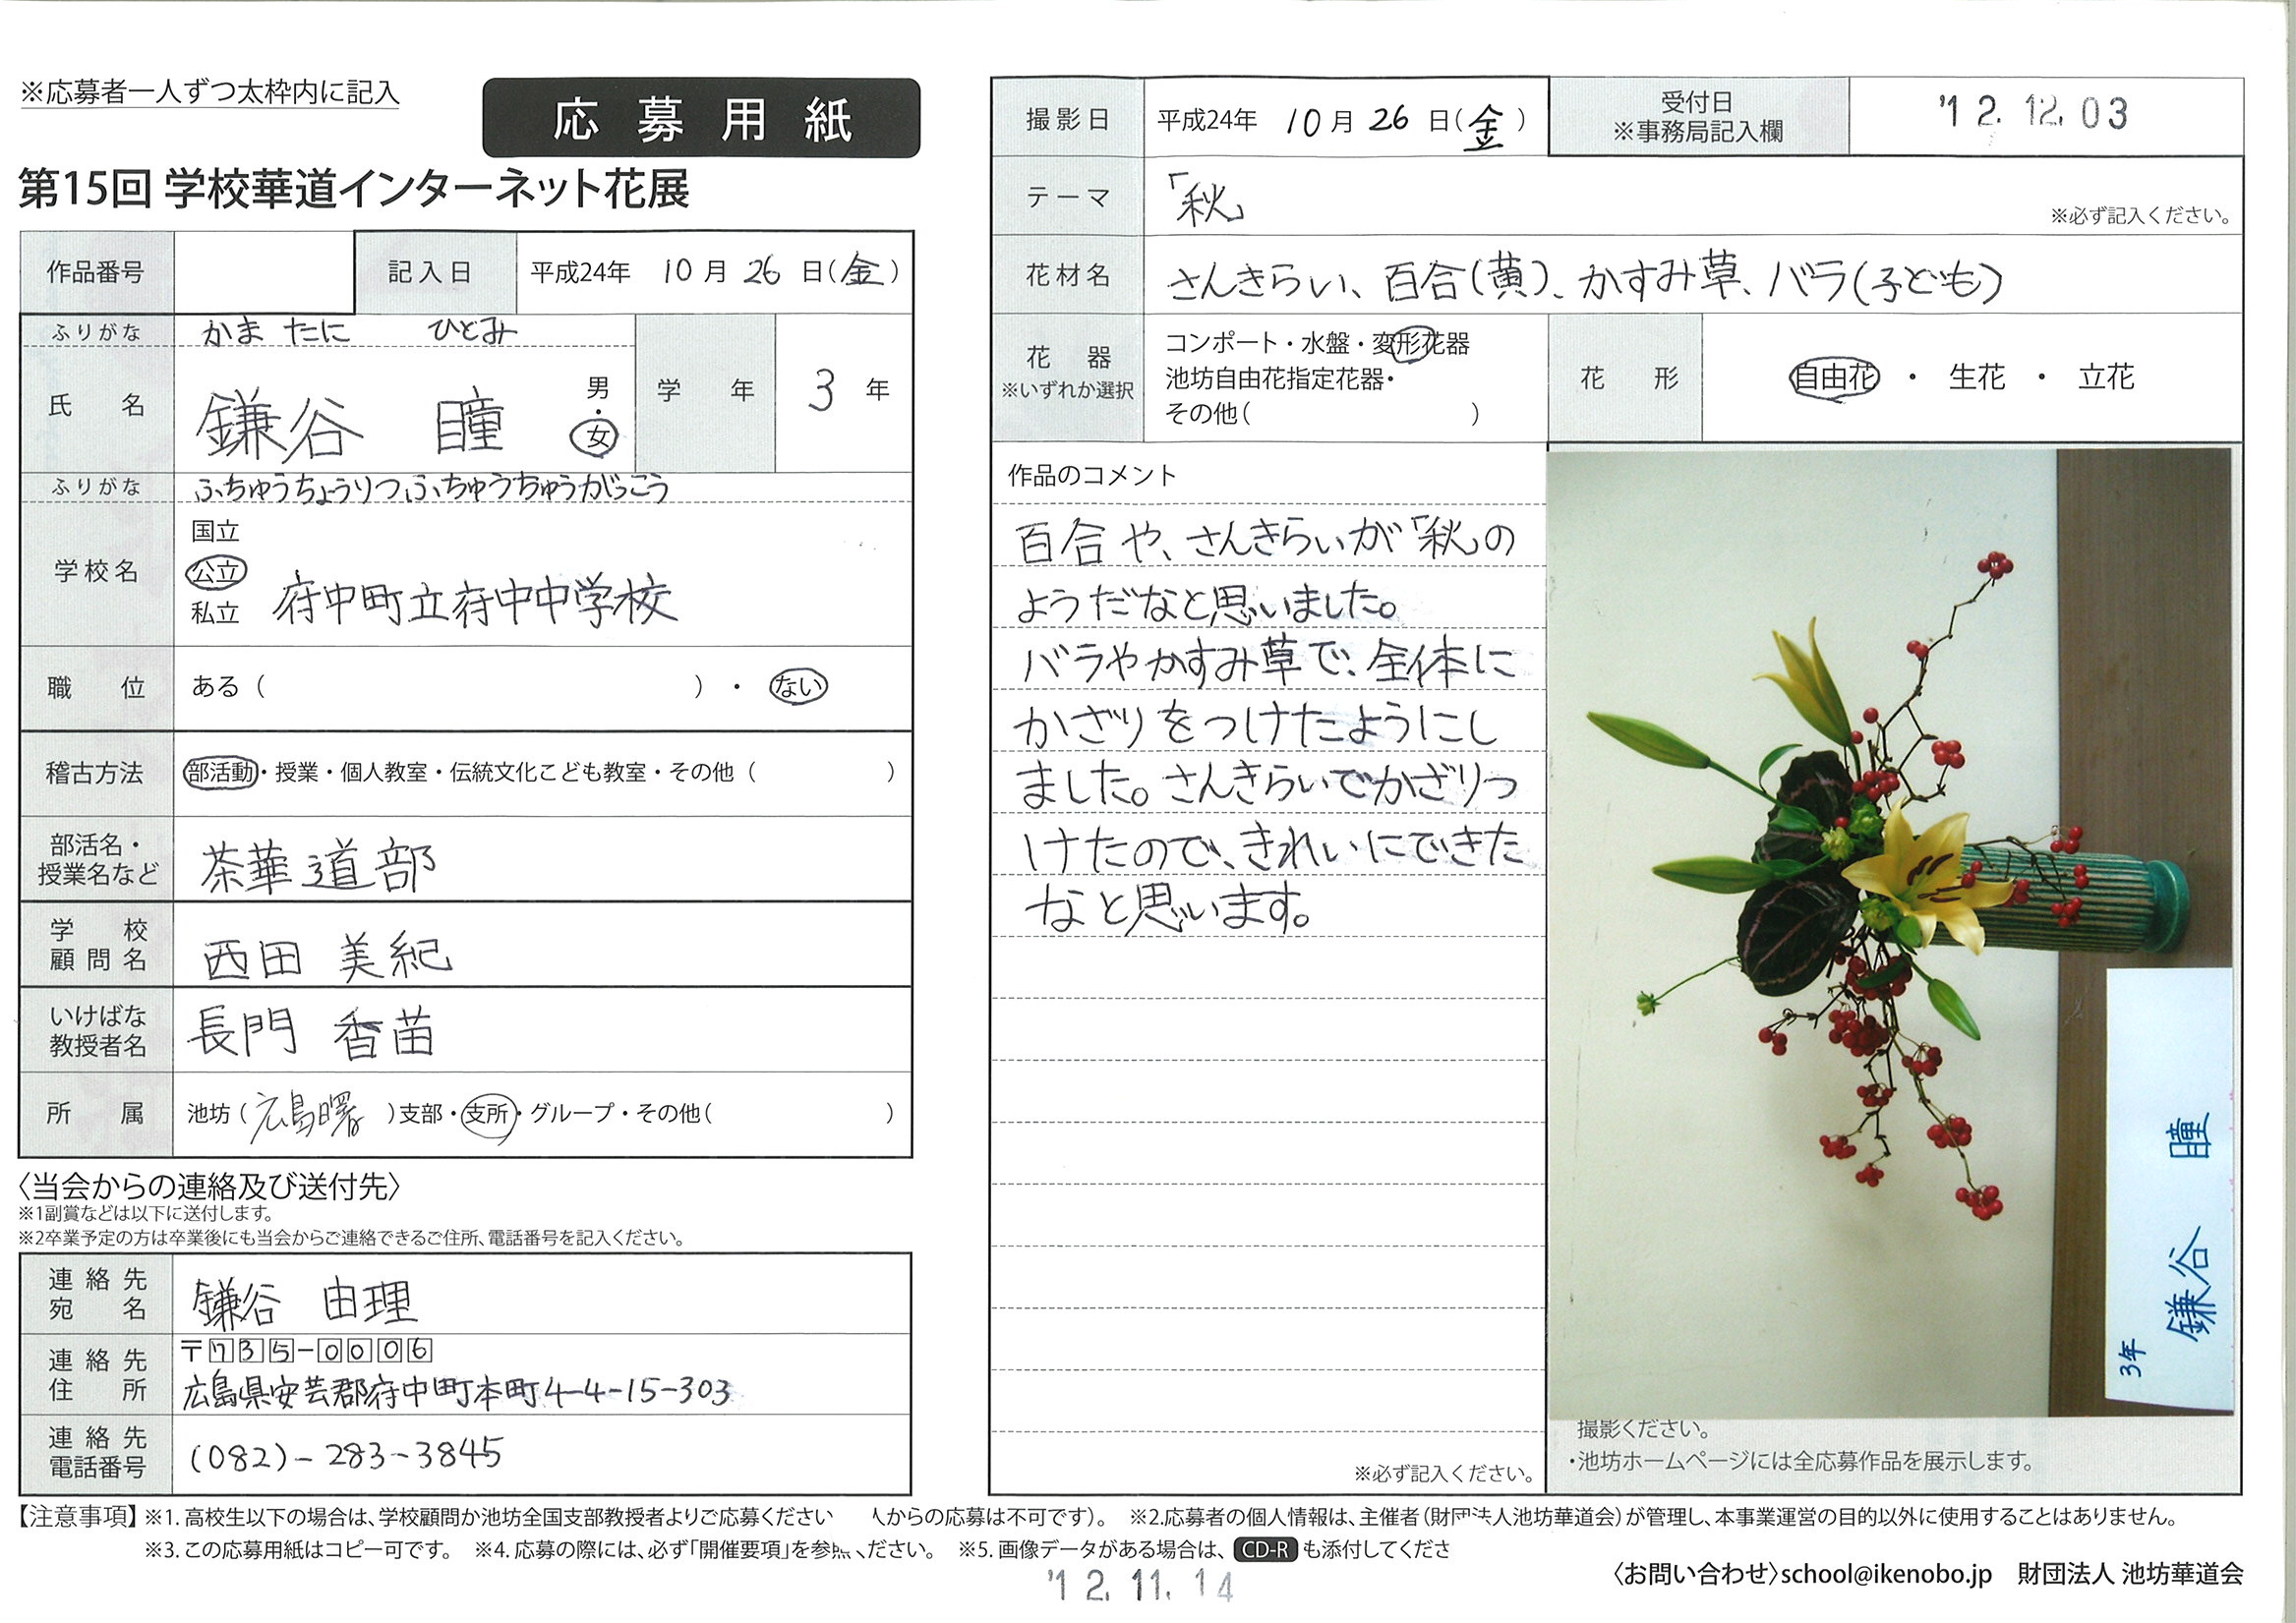 ※応募者一人ずつ太枠内に記入
応募用紙
第15回 学校華道インターネット花展
作品番号
記入日 平成24年 10月 26日(金)
ふりがな かま たに ひとみ
氏名 鎌谷 瞳 男・女
学年 3年
ふりがな ふちゅうちょうりつふちゅうちゅうがっこう
学校名 国立 公立 私立 府中町立府中中学校
職位 ある( )・ない
稽古方法 部活動・授業・個人教室・伝統文化こども教室・その他( )
部活名・授業名など 茶華道部
学校顧問名 西田 美紀
いけばな教授者名 長門 香苗
所属 池坊(広島曙)支部・支所・グループ・その他( )
〈当会からの連絡及び送付先〉
※1副賞などは以下に送付します。
※2卒業予定の方は卒業後にも当会からご連絡できるご住所、電話番号を記入ください。
連絡先宛名 鎌谷 由理
連絡先住所 〒735-0006
広島県安芸郡府中町本町4-4-15-303
連絡先電話番号 (082)-283-3845
撮影日 平成24年 10月 26日(金)
受付日 ※事務局記入欄 '12.12.03
テーマ 「秋」 ※必ず記入ください。
花材名 さんきらい、百合(黄)、かすみ草、バラ(子ども)
花器 ※いずれか選択
コンポート・水盤・変形花器
池坊自由花指定花器・
その他( )
花形 自由花・生花・立花
作品のコメント
百合や、さんきらいが「秋」の
ようだなと思いました。
バラやかすみ草で、全体に
かざりをつけたようにし
ました。さんきらいでかざりつ
けたので、きれいにできた
なと思います。
※必ず記入ください。
3年 鎌谷 瞳
撮影ください。
・池坊ホームページには全応募作品を展示します。
【注意事項】※1.高校生以下の場合は、学校顧問か池坊全国支部教授者よりご応募ください 人からの応募は不可です)。 ※2.応募者の個人情報は、主催者(財団法人池坊華道会)が管理し、本事業運営の目的以外に使用することはありません。
※3.この応募用紙はコピー可です。 ※4.応募の際には、必ず「開催要項」を参照ください。 ※5.画像データがある場合は、CD-Rも添付してくださ
'12.11.14
〈お問い合わせ〉school@ikenobo.jp 財団法人 池坊華道会